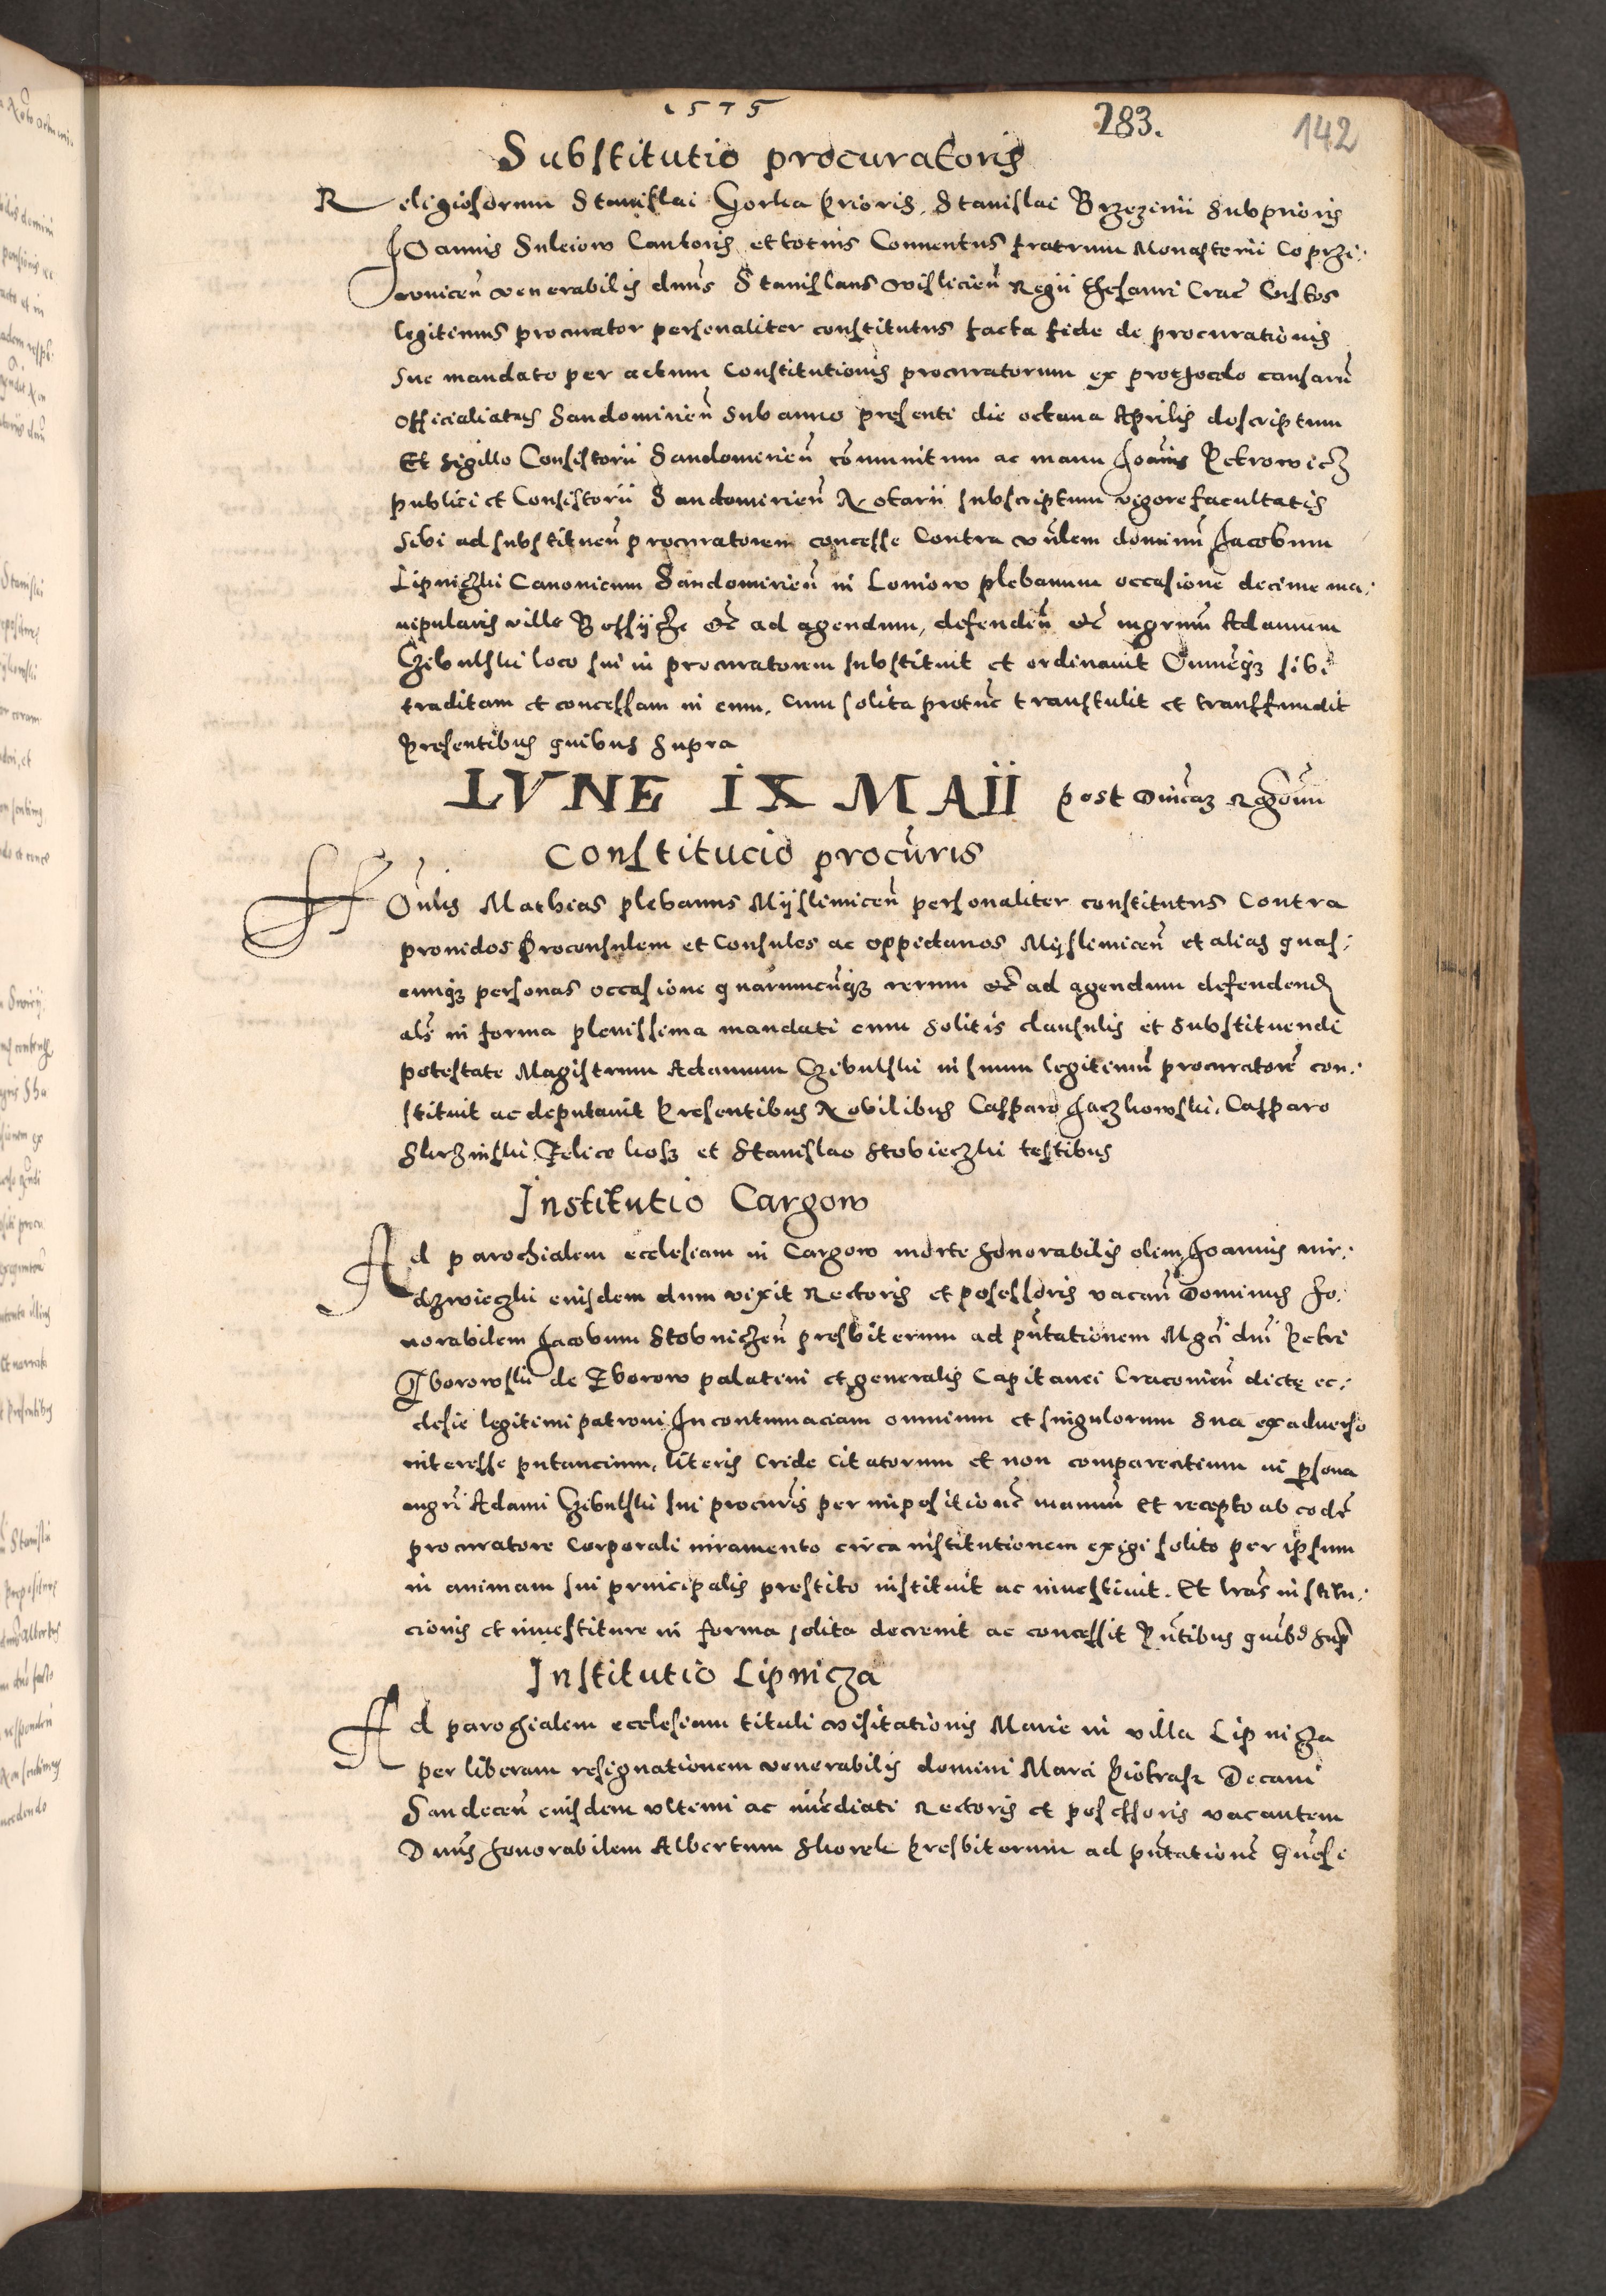 1575
283.
142
Substitutio procuratoris
Religiosorum Stanislai Gorka prioris, Stanislai Brzezinii Subprioris
Joannis Suleiow Cantoris et totius Conuentus fratrum Monasterii Coprzi:
wnicen̄ venerabilis dnus Stanislaus Wislicien̄ Regii thesauri Crac̄ Custos
legitimus procurator personaliter constitutus facta fide de procurationis
sue mandato per actum Constitutionis procuratorum ex prothocolo causarū
officialiatus Sandomirien̄ sub anno presenti die octaua Aprilis descriptum
Et sigillo Consistorii Sandomirien̄ cōmunitum ac manu Joānis Petrowicz
publici et Consistorii Sandomirien̄ Notarii subscriptum vigore facultatis
sibi ad substituen̄ procuratorem concesse Contra vn̄lem dominū Jacobum
Lipniczki Canonicum Sandomirien̄ in Loniow plebanum occasione decime ma:
nipularis ville Bossÿcze etc̄ ad agendum, defenden̄ etc̄ mgrum̄ Adamum
Czibulski loco sui in procuratorem substituit et ordinauit Omnēqz sibi
traditam et concessam in eum, cum solita protūc transtulit et transfundit
presentibus quibus supra
LVNE IX MAII post Dnīcaz Rgōnū
Constitucio procūris
Vn̄lis Mathias plebanus Mÿslimicen̄ personaliter constitutus Contra
prouidos Proconsulem et Consules ac oppidanos Mÿslimicen̄ et alias quas:
cunqz personas occasione quarumcūqz rerum etc̄ ad agendum defendend
als̄ in forma plenissima mandati cum solitis clausulis et substituendi
potestate Magistrum Adamum Czibulski in suum legitimū procuratorē con:
stituit ac deputauit Presentibus Nobilibus Casparo Jaczkowski, Casparo
Skrzinski Felice kosz et Stanislao Stobieczki testibus
Institutio Cargow
Ad parochialem ecclesiam in Cargow morte honorabilis olim Joannis
dzwieczki eiusdem dum vixit Rectoris et posessoris vacan̄ Dominus ho:
norabilem Jacobum Stobniczen̄ presbiterum ad pn̄tationem Mgci dnī Petri
Zborowski de Zborow palatini et generalis Capitanei Cracouien̄ dictę ec:
clesie legitimi patroni In contumaciam omnium et singulorum sua ex aduerso
interesse putancium, literis Cride citatorum et non comparentium in psona
mgrī Adami Czibulski sui procurīs per impositionē manuū Et recepto ab eodē
procuratore Corporali iuramento circa institutionem exigi solito per ipsum
in animam sui principalis prestito instituit ac inuestiuit. Et lrās institu:
cionis et inuestiture in forma solita decreuit ac concessit Pn̄tibus quibus supr
Institutio Lipnicza
Ad parochialem ecclesiam tituli visitationis Marie in villa Lipnicza
per liberam resignationem venerabilis domini Marci Piotrasz Decani
Sandecen̄ eiusdem vltimi ac imēdiati Rectoris et posessoris vacantem
Dnus honorabilem Albertum Skorek Presbiterum ad pn̄tationē